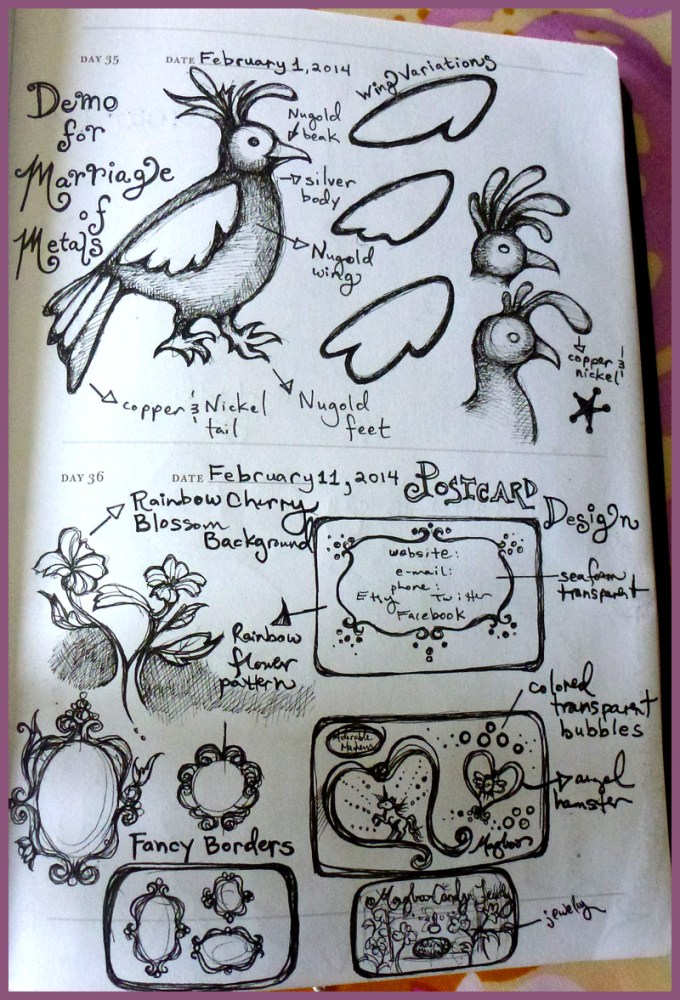 DAY 35
DATE February 1, 2014
Demo
for
Marriage
of
Metals
Nugold
beak
Wing Variations
silver
body
Nugold
wing
copper &
nickel
copper & Nickel
tail
Nugold
feet
DAY 36
DATE February 11, 2014
POSTCARD
Design
Rainbow Cherry
Blossom
Background
website:
e-mail:
phone:
Etsy Twitter
Facebook
seafoam
transparent
Rainbow
flower
pattern
colored
transparent
bubbles
Adorable
angel
hamster
Fancy Borders
jewelry